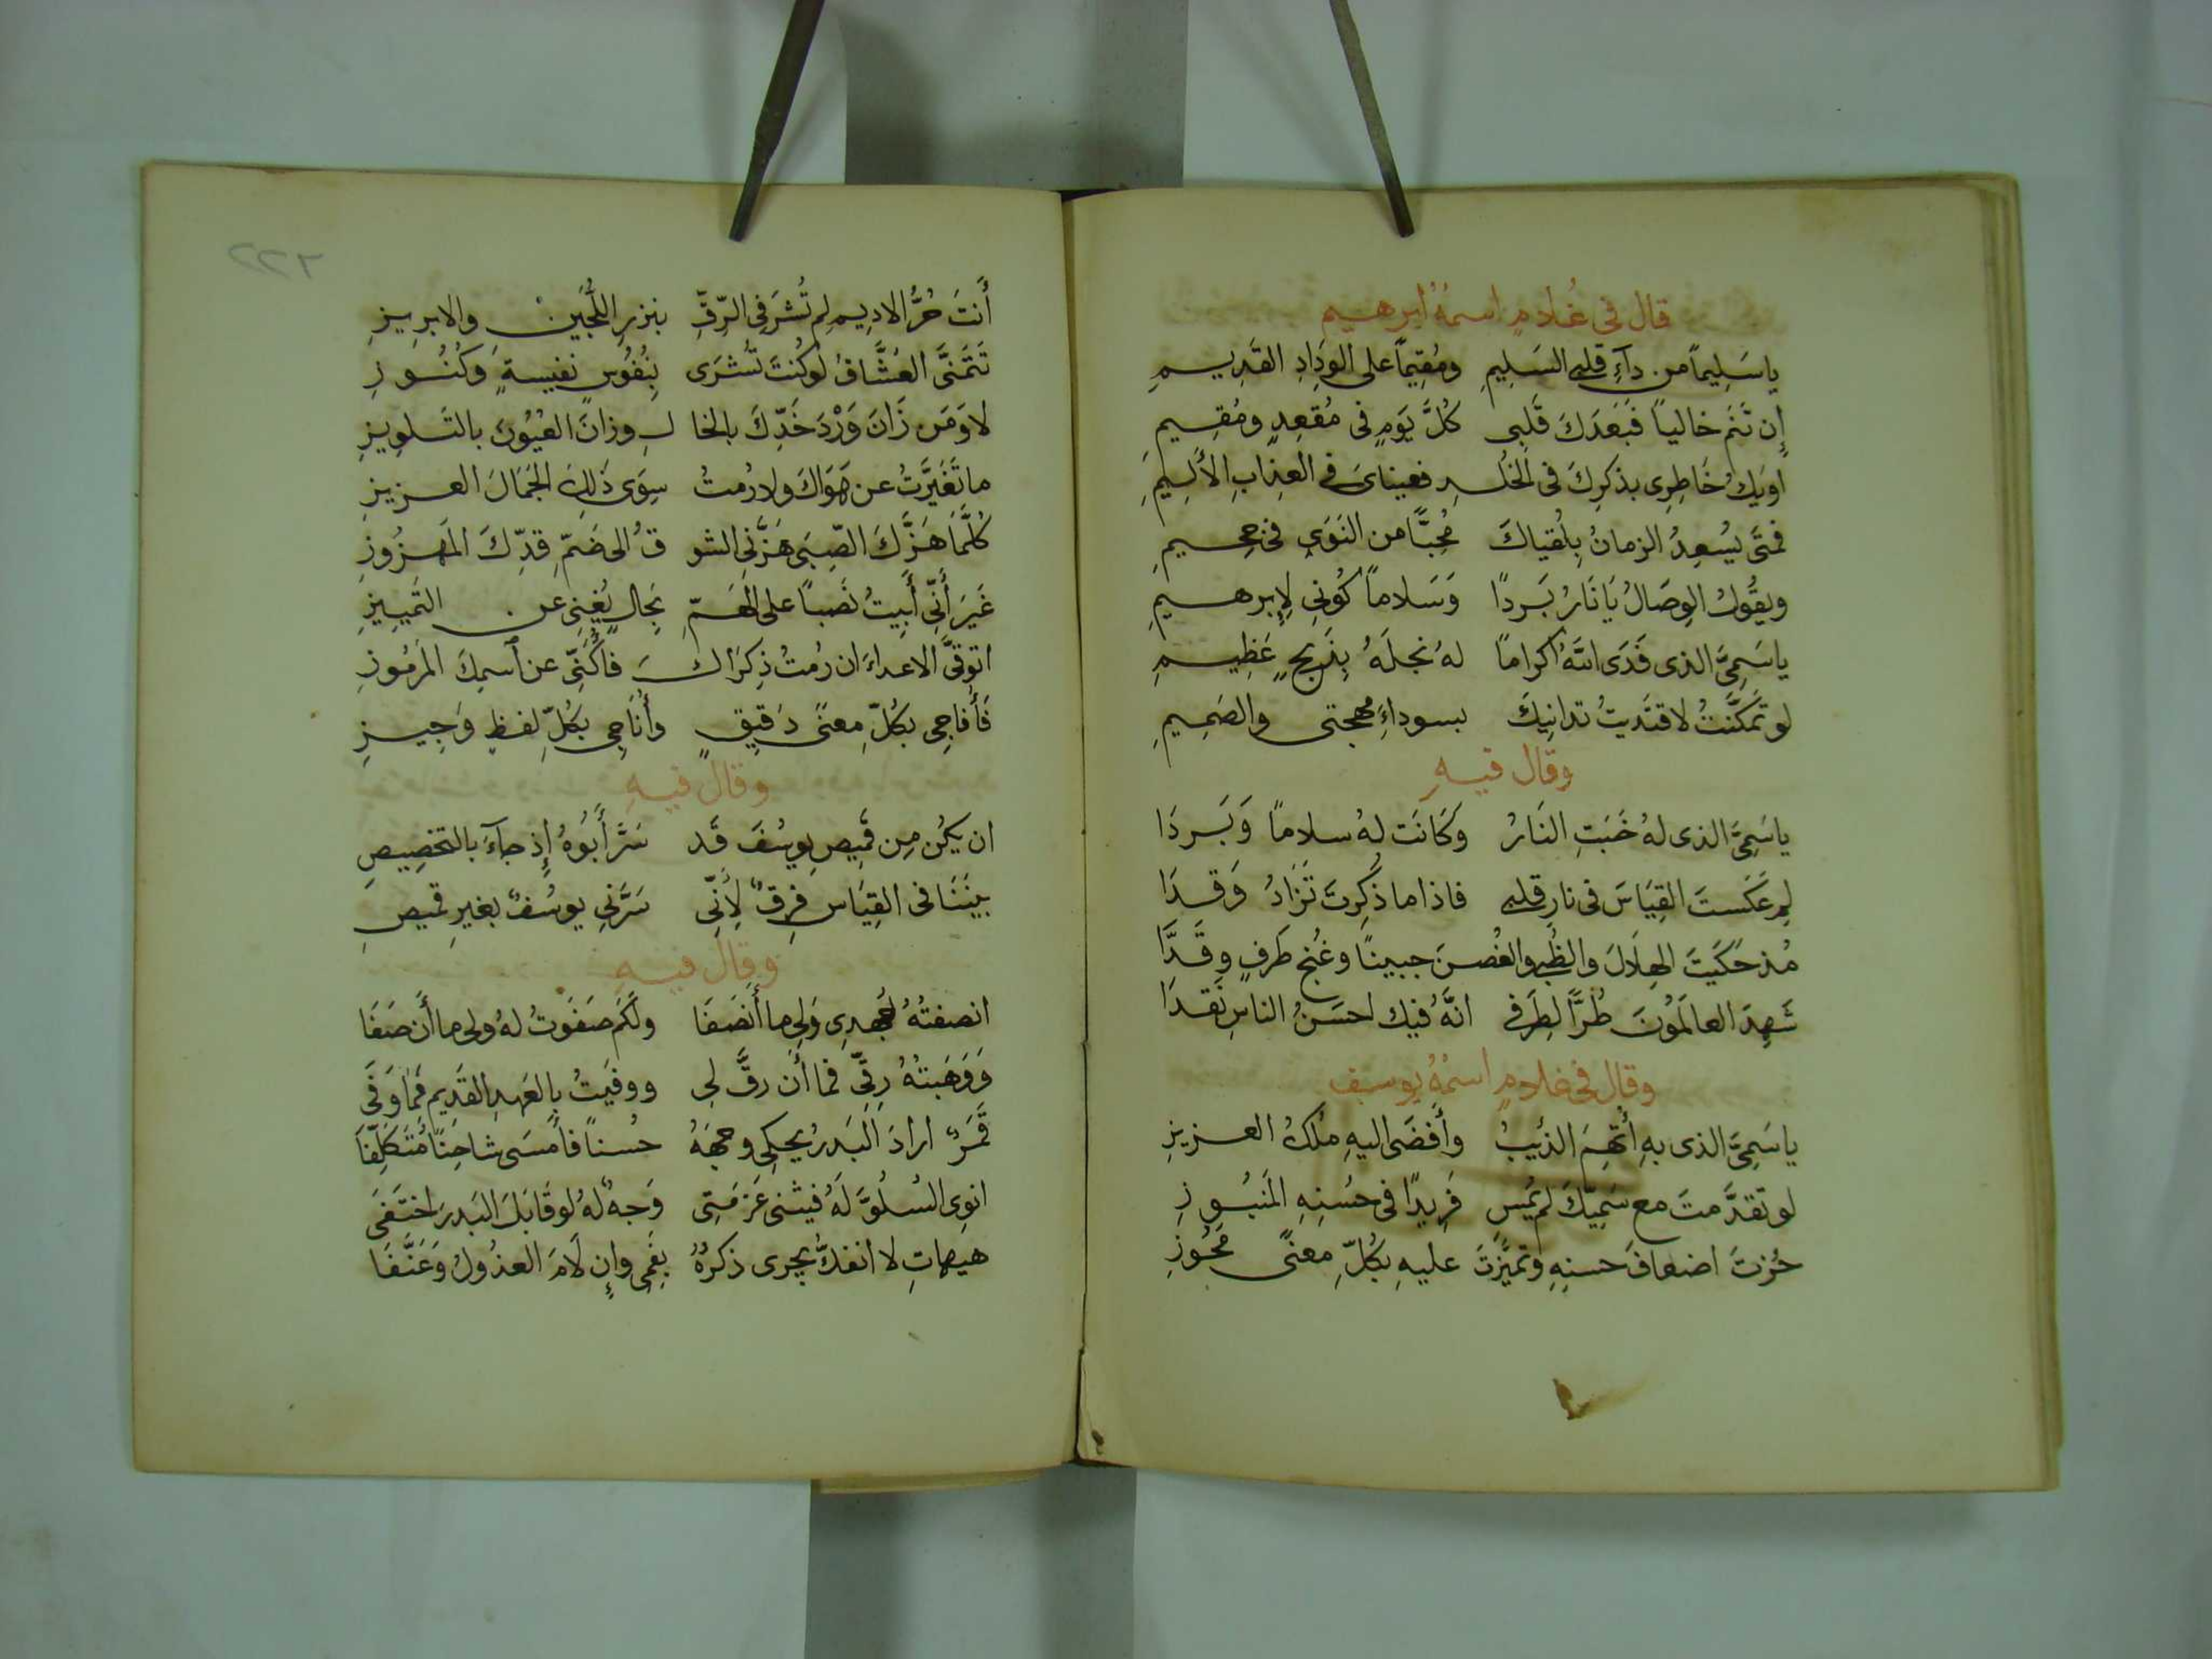 قال فى غُلامٍ اسمهُ ابرهيم
ياسَلِيماً من دآءِ قلبى السَليمِ ومُقِيماً على الوِدَادِ القَدِيمِ
إِن تَنَم خالياً فَبَعدَكَ قَلبى كُلَّ يَومٍ فى مُقعِدٍ ومُقِيمِ
اويَكُ خَاطِرِى بذكرِكَ فى الخُلدِ فعيناىَ فى العذابِ الأَلِيمِ
فمتَى يُسْعِدُ الزمانُ بِلُقياكَ مُحِبًّا من النَوَى فى جحيمِ
ويقُولُ الوِصَالُ يَانَارُ بَردًا وَسَلاماً كُونِى لِإبرهيمِ
ياسَمِىَّ الذى فَدَى اللهُ اكرامًا لهُ نجلَهُ بِذَبحٍ عَظِيمِ
لو تمَكَّنتُ لاقتَديتُ تدانِيكَ بسوداءِ مهجتى والصَمِيمِ
وقال فيه
ياسَمِىَّ الذى لهُ خَبَتِ النَارُ وَكَانَت لهُ سلاماً وَبَردَا
لِم عَكَستَ القِيَاسَ فى نارِ قلبى فاذا ما ذُكِرتَ تَزَادُ وَقدَا
مُذ حَكَيتَ الهِلَالَ والظَبى والغُصنَ جبينًا وغُنجَ طَرفٍ وقَدَّا
شَهِدَ العالَمُونَ طُرًّا لِطَرفى انَّهُ فيك احسَنُ الناسِ نَقدَا
وقال فى غلامٍ اسمُهُ يوسف
ياسَمِىَّ الذى بهِ أُتُّهِمَ الذيبُ وأَفضَى اليهِ مُلكُ العزيزِ
لو تقدَّمتَ مع سَمِيّكَ لم يُمسِ فَرِيدًا فى حُسنِهِ المَنبُوزِ
حُزتَ اضعافَ حسنِهِ وتميَّزتَ عليهِ بكُلِّ معنًى مَحُوزِ
٢٢٢
أَنتَ حُرُّ الاديمِ لم تُشرَ فى الرِّقِّ بنزرِ اللُّجَينِ والابريزِ
تَتَمَنَّى العُشَّاقُ لو كُنتَ تُشرَى بِنُفُوسٍ نفيسةٍ وَكُنُوزِ
لا وَمَن زَانَ وَرْدَ خَدِّكَ بالخا لِ وزانَ العُيُونَ بالتَلوِيزِ
ما تَغَيَّرتُ عن هَوَاكَ ولا رُمتُ سِوَى ذَلِكَ الجَمَالَ العزيزِ
كُلَّمَا هَزَّكَ الصِّبَى هَزَّنِى الشو قُ الى ضَمِّ قدِّكَ المَهزُوزِ
غَيرَ أَنّى أَبِيتُ نَصباً على الهَمِّ بحالٍ يُغنِى عن التَميِيزِ
اتوقَّى الاعداءَ ان رُمتُ ذِكرَاكَ فأُكَنِّى عن اسمِكَ المَرمُوزِ
فَأُفاجِى بكُلِّ معنًى دَقيقٍ وأُناجِى بكُلِّ لفظٍ وَجِيزِ
وقال فيهِ
ان يكُن مِن قَميصِ يوسُفَ قَد سَرَّ أَبُوهُ إِذ جآءَ بالتخصِيصِ
بينَنَا فى القِيَاس فرقٌ لِأَنّى سَرَّنِى يوسُفٌ بغيرِ قميصِ
وقال فيهِ
انصفتُهُ جُهدِى وَلِى ما أَنصَفَا ولَكَم صَفَوتُ لهُ ولى ما أَن صَفَا
وَوَهَبتُهُ رِقّى فما أَن رقَّ لِى ووفَيتُ بالعَهدِ القَدِيمِ فَمَا وَفَى
قَمَرٌ ارادَ البَدرُ يحكِى وجهَهُ حُسناً فأمسَى شاحِبًا مُتَكَلّفَا
انوِى السُلُوَّ لَهُ فيثنِى عَزمَتِى وَجهٌ لهُ لو قَابَلَ البَدرَ اختَفَى
هيهاتِ لا انفكُّ يجرِى ذكرُهُ بِفَمِى وإِن لَامَ العذُولُ وَعَنَّفَا